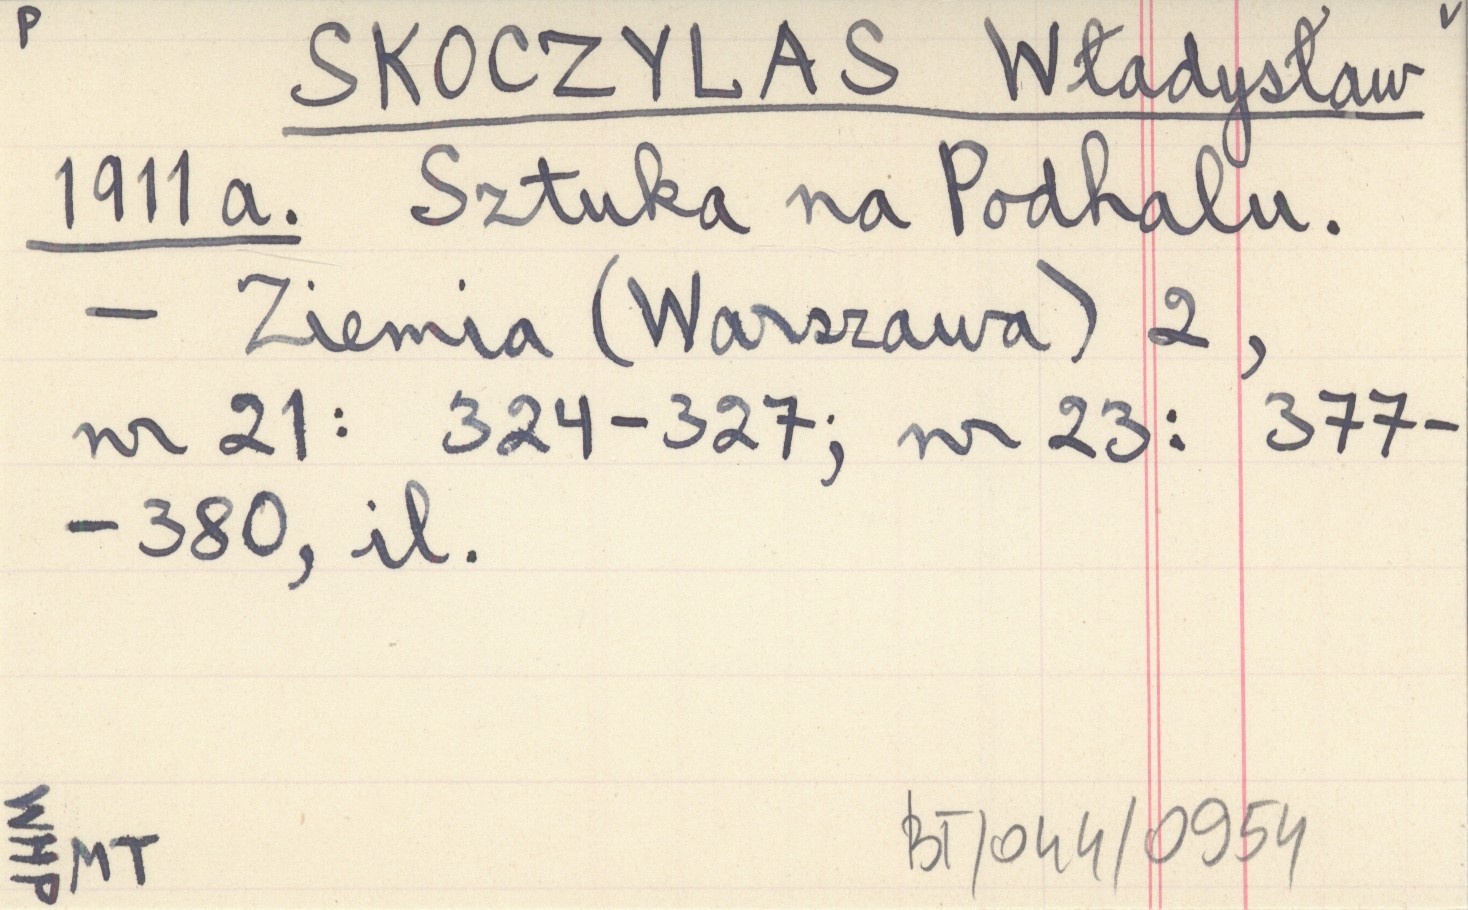 P
v
SKOCZYLAS Władysław
1911a. Sztuka na Podhalu.
— Ziemia (Warszawa) 2,
nr 21: 324-327; nr 23: 377-
-380, il.
WHP
MT
BT/044/0954